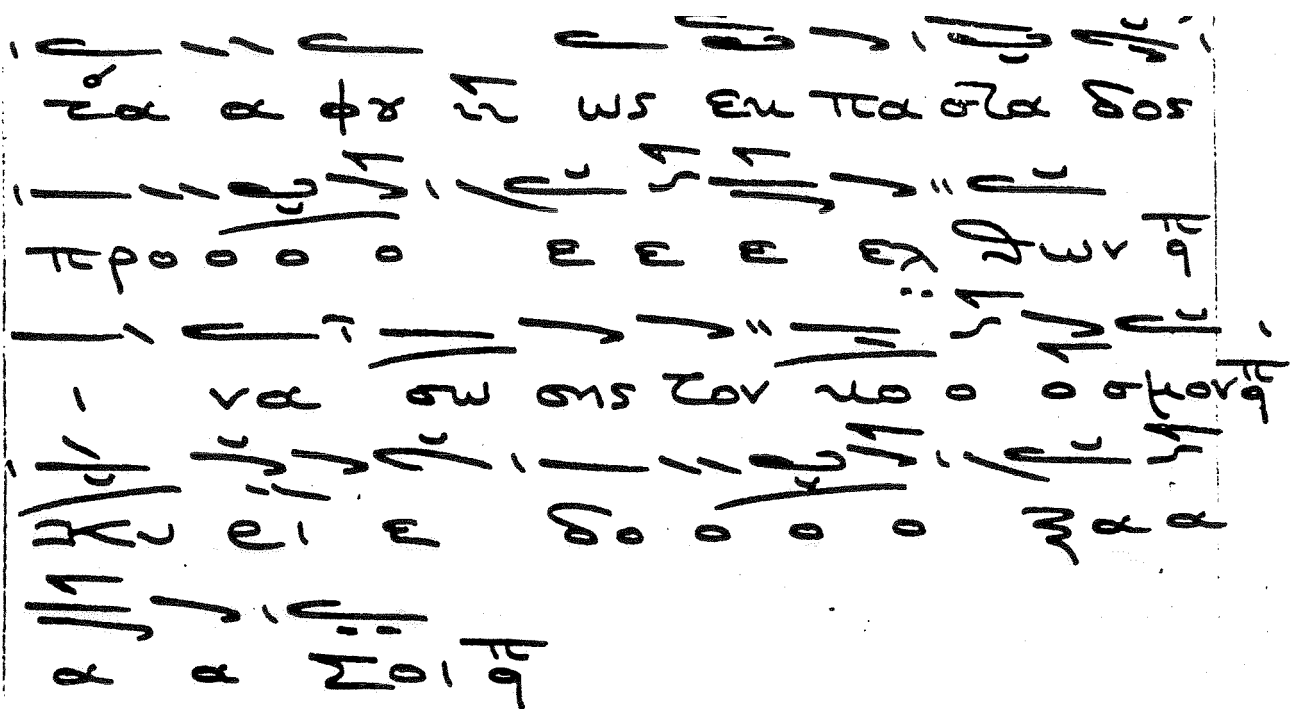 τα α φου ως εκ πα στα δος
προ ο ο ο ε ε ε ελ θων πα
ι να σω σης τον κο ο ο σμον πα
Κυ ρι ε δο ο ο ο ξα α α
α α Σοι πα